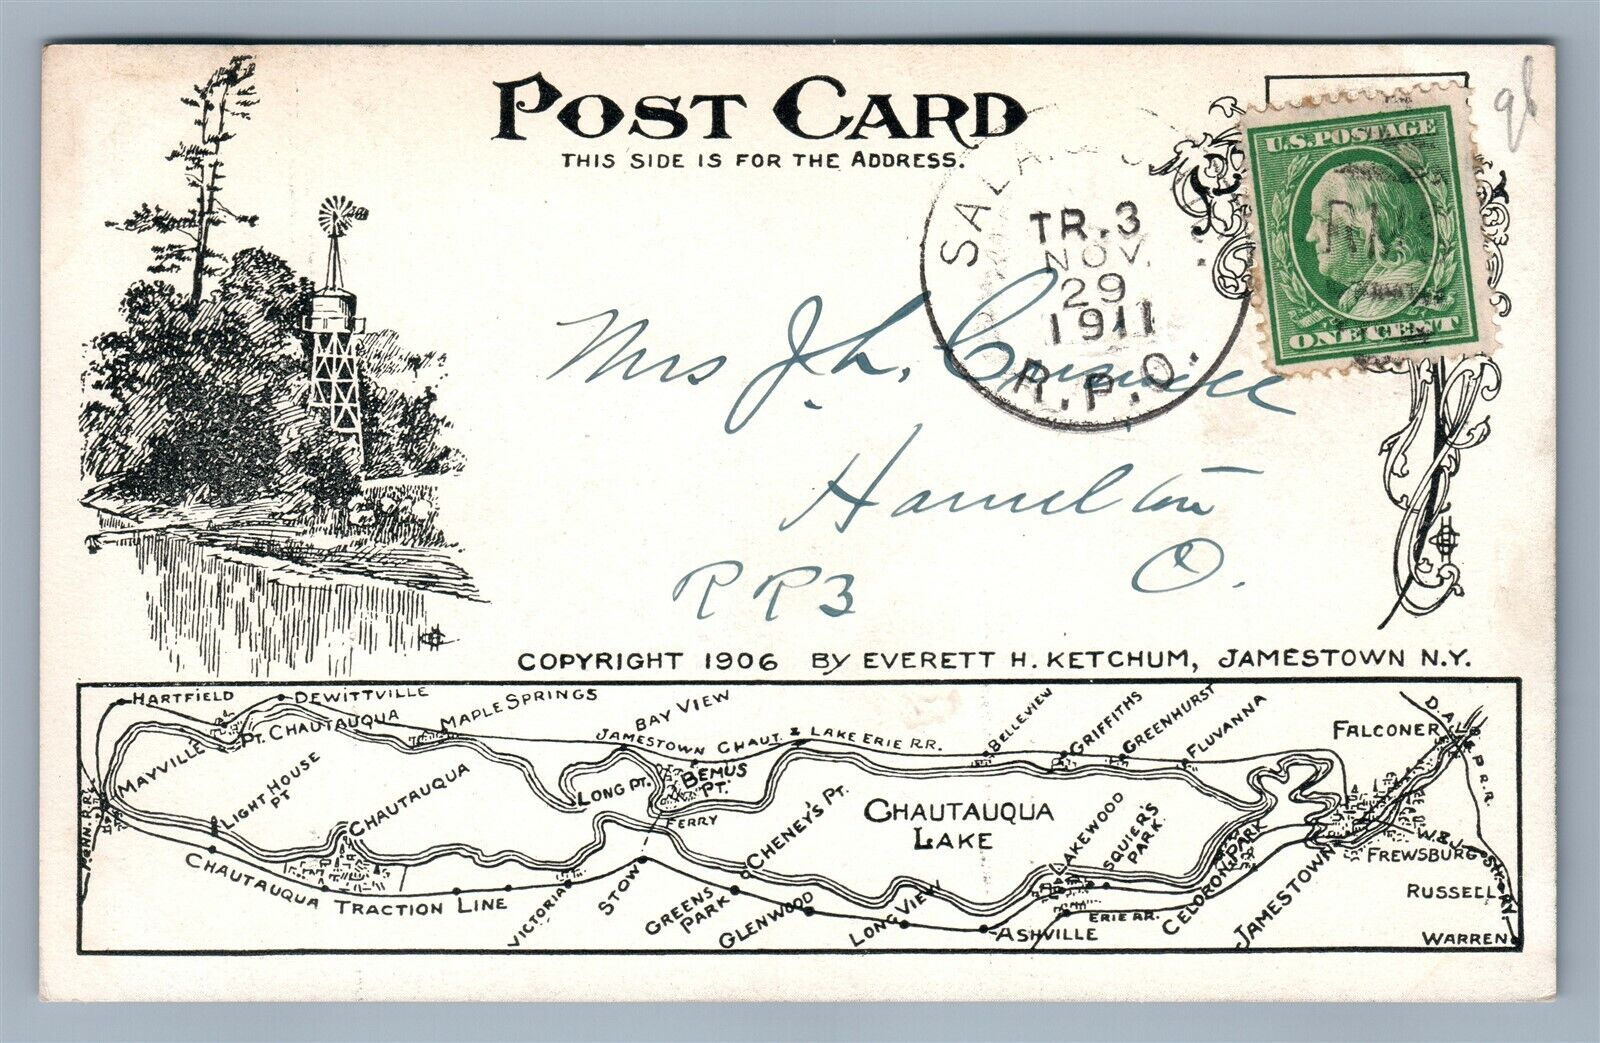 POST CARD
THIS SIDE IS FOR THE ADDRESS.
9b
U.S. POSTAGE
ONE CENT
RMS
TR. 3
NOV.
29
1911
R.P.O.
Mrs J. L.
Hamilton
O.
RR3
COPYRIGHT 1906 BY EVERETT H. KETCHUM, JAMESTOWN N.Y.
HARTFIELD
DEWITTVILLE
MAPLE SPRINGS
BAY VIEW
BELLEVIEW
GRIFFITHS
GREENHURST
FLUVANNA
PT. CHAUTAUQUA
JAMESTOWN CHAUT. & LAKE ERIE RR.
FALCONER
D.A.V. & P.R.R.
MAYVILLE
LIGHT HOUSE PT
CHAUTAUQUA
LONG PT.
BEMUS PT.
FERRY
CHENEY'S PT.
CHAUTAUQUA LAKE
LAKEWOOD
SQUIER'S PARK
CELORON PARK
JAMESTOWN
W. & J. ST. RY
FREWSBURG
PENN. R.R.
CHAUTAUQUA TRACTION LINE
VICTORIA
STOW
GREENS PARK
GLENWOOD
LONG VIEW
ASHVILLE
ERIE RR.
RUSSELL
WARREN